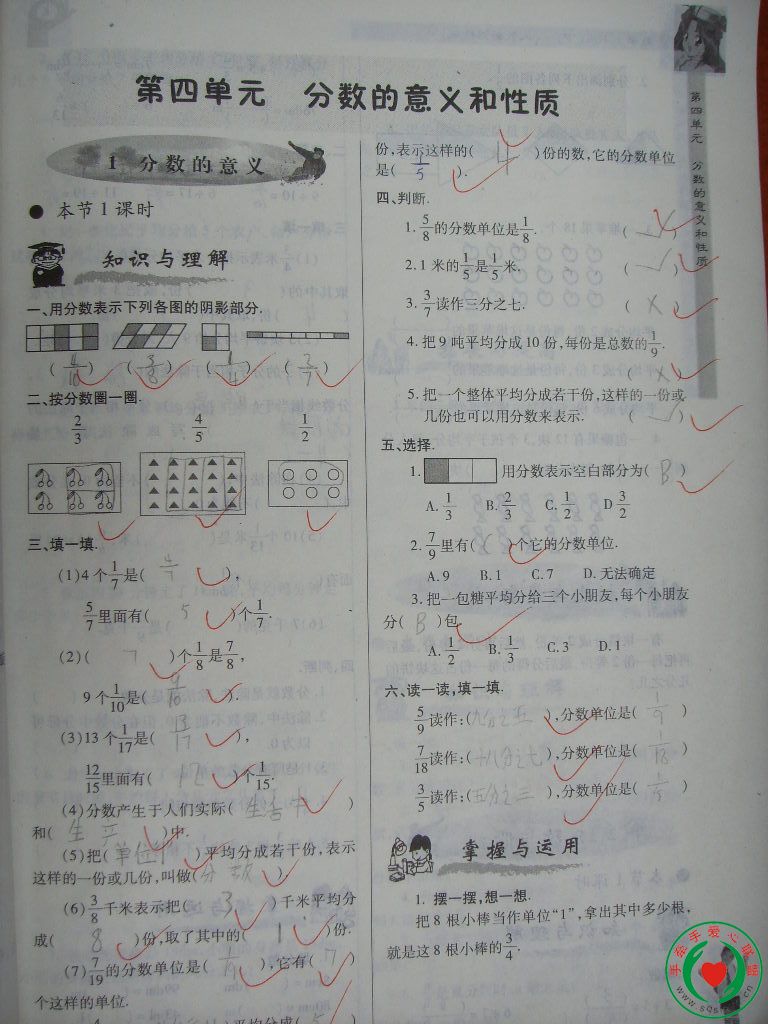 第四单元 分数的意义和性质
1 分数的意义
● 本节1课时
知识与理解
一、用分数表示下列各图的阴影部分.
( 4/10 ) ( 3/8 ) ( 1/4 ) ( 3/7 )
二、按分数圈一圈.
2/3 4/5 1/2
三、填一填.
(1)4个1/7是( 4/7 ),
5/7里面有( 5 )个1/7.
(2)( 7 )个1/8是7/8,
9个1/10是( 9/10 ).
(3)13个1/17是( 13/17 ),
12/15里面有( 12 )个1/15.
(4)分数产生于人们实际( 生活中 )
和( 生产 )中.
(5)把( 单位1 )平均分成若干份,表示
这样的一份或几份,叫做( 分数 ).
(6)3/8千米表示把( 3 )千米平均分
成( 8 )份,取了其中的( 1 )份.
(7)7/19的分数单位是( 1/19 ),它有( 7 )
个这样的单位.
平均分成( 5 )
份,表示这样的( 4 )份的数,它的分数单位
是( 1/5 ).
四、判断.
1. 5/8的分数单位是1/8. ( ✓ )
2. 1米的1/5是1/5米. ( ✓ )
3. 3/7读作三分之七. ( × )
4. 把9吨平均分成10份,每份是总数的1/9.
( × )
5. 把一个整体平均分成若干份,这样的一份或
几份也可以用分数来表示. ( ✓ )
五、选择.
1. 用分数表示空白部分为( B )
A. 1/3 B. 2/3 C. 1/2 D 3/2
2. 7/9里有( )个它的分数单位.
A. 9 B. 1 C. 7 D. 无法确定
3. 把一包糖平均分给三个小朋友,每个小朋友
分( B )包.
A. 1/2 B. 1/3 C. 3 D. 1
六、读一读,填一填.
5/9读作:( 九分之五 ),分数单位是( 1/9 )
7/18读作:( 十八分之七 ),分数单位是( 1/18 )
3/5读作:( 五分之三 ),分数单位是( 1/5 )
掌握与运用
1. 摆一摆,想一想.
把8根小棒当作单位“1”,拿出其中多少根,
就是这8根小棒的3/4.
第四单元 分数的意义和性质
手牵手爱心联盟